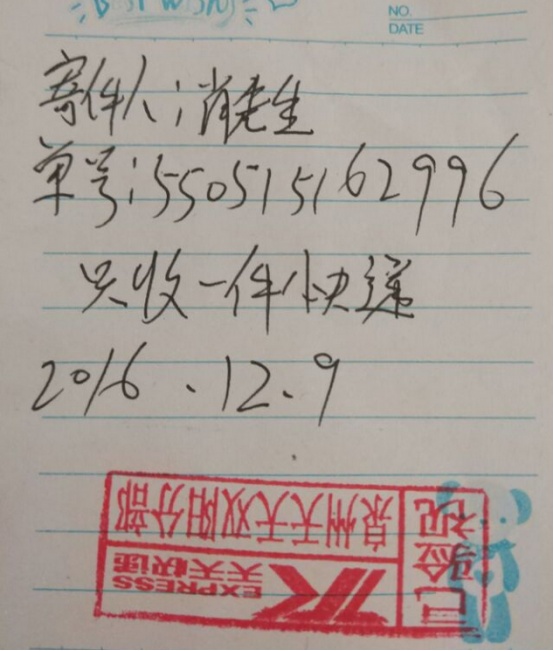 NO.
DATE
寄件人:肖先生
单号:550515162996
只收一件快递
2016.12.9
泉州天天双阳分部
天天快递
EXPRESS
已验视